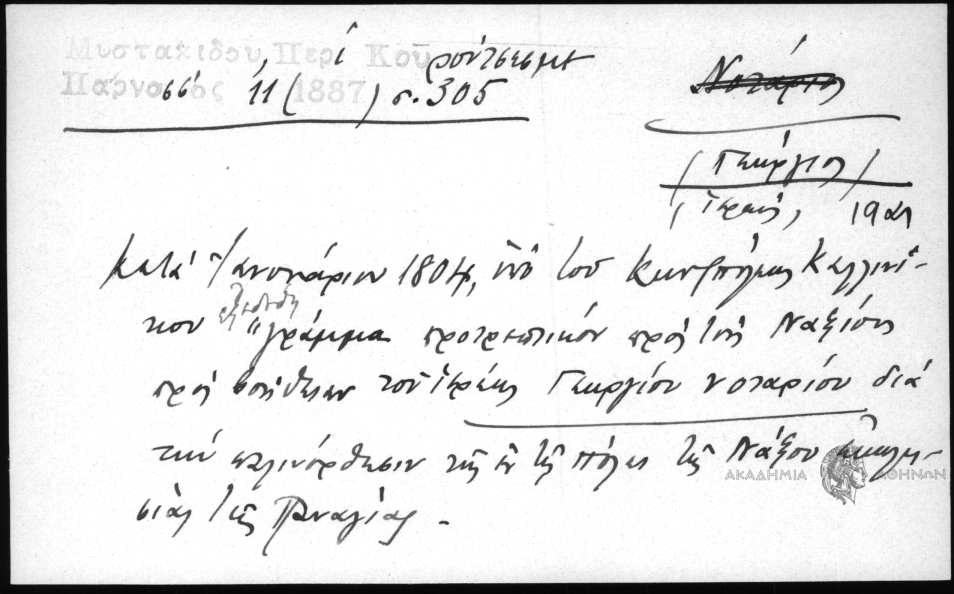 Μυστακίδου, Περὶ Κου
ρούτσεσμε
Παρνασσός 11 (1887) σ. 305
Νοτάριος
(Γεώργιος)
(ἱερεύς) 19αι
Κατὰ Ἰανουάριον 1804, ὑπὸ τοῦ Κωνσ/πόλεως Καλλινί-
κου ἐξεδόθη "γράμμα προτρεπτικὸν πρὸς τοὺς Ναξίους
πρὸς βοήθειαν τοῦ ἱερέως Γεωργίου νοταρίου διὰ
τὴν παλινόρθωσιν τῆς ἐν τῇ πόλει τῆς Νάξου ἐκκλη-
σίας τῆς Παναγίας.
ΑΚΑΔΗΜΙΑ ΑΘΗΝΩΝ